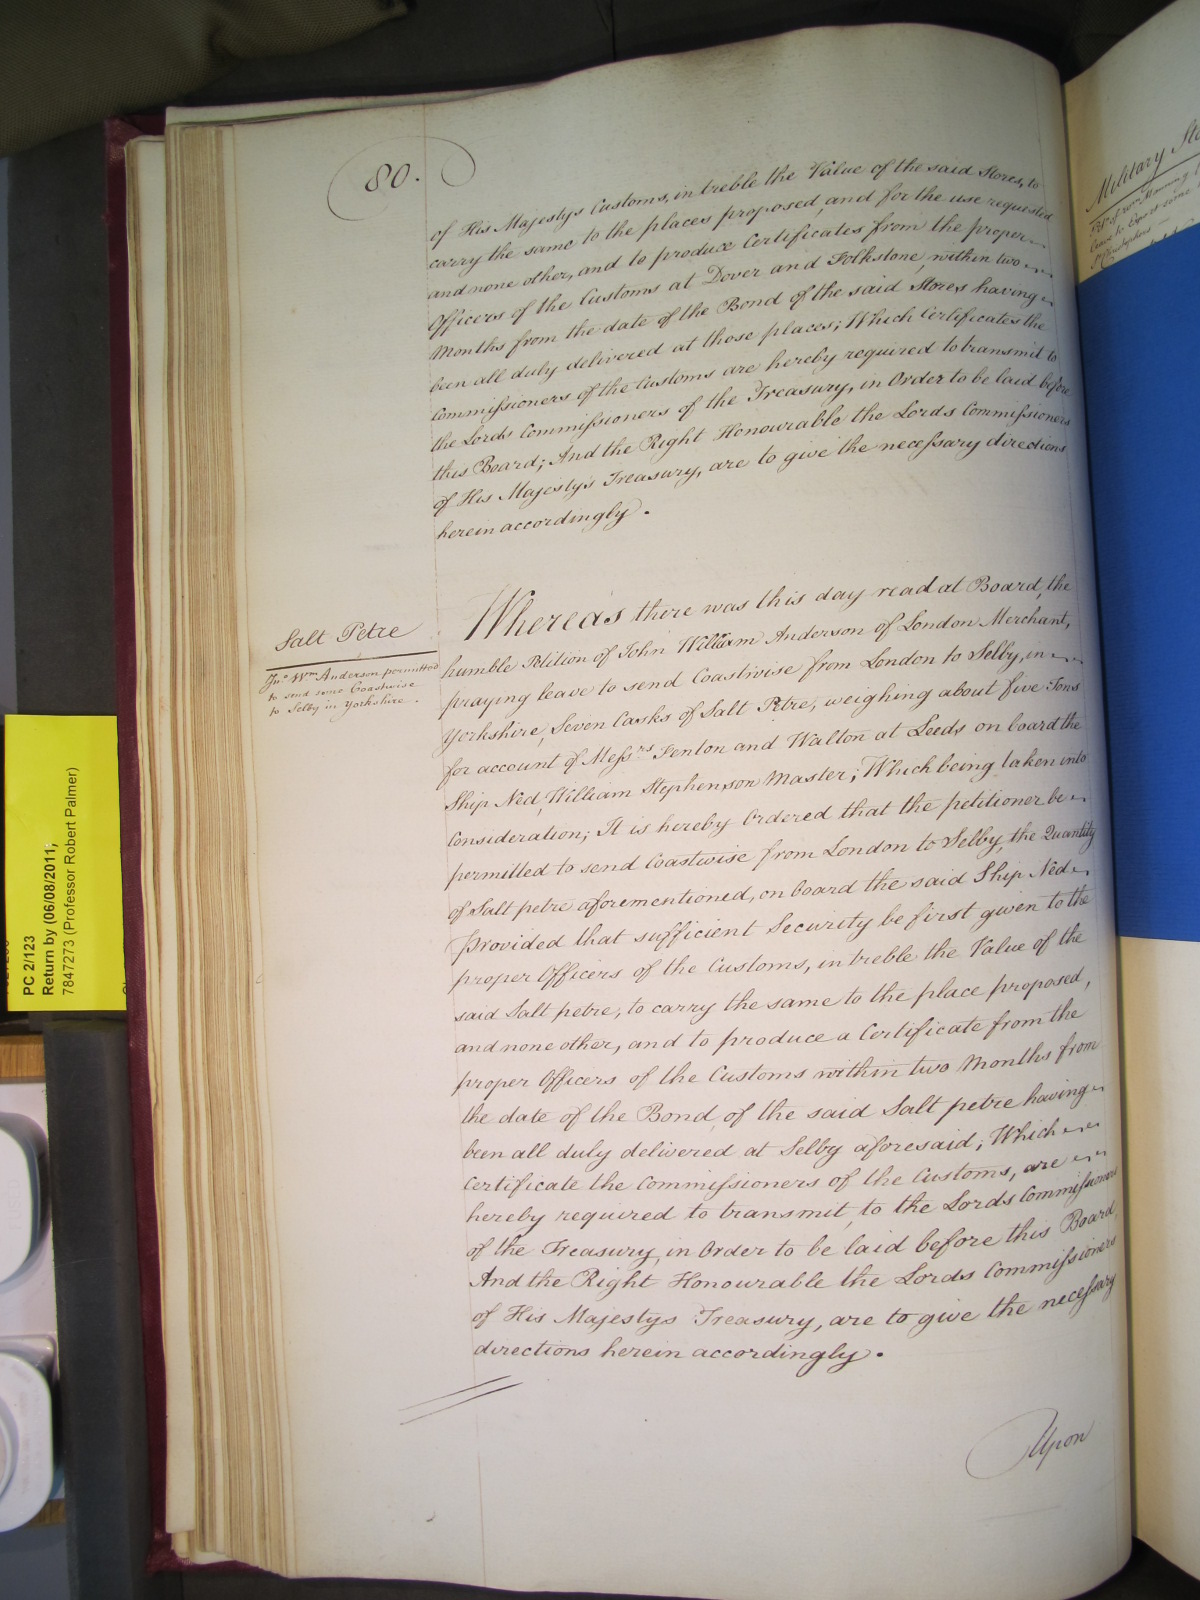 80.
of His Majestys Customs, in treble the Value of the said Stores, to
carry the same to the places proposed, and for the use requested
and none other, and to produce Certificates from the proper
Officers of the Customs at Dover and Folkstone, within two
Months from the date of the Bond of the said Stores having
been all duly delivered at those places; Which Certificates the
Commissioners of the Customs are hereby required to transmit to
the Lords Commissioners of the Treasury, in Order to be laid before
this Board; And the Right Honourable the Lords Commissioners
of His Majesty's Treasury, are to give the necessary directions
herein accordingly.
Salt Petre
Jno. Wm. Anderson permitted
to send some Coastwise
to Selby in Yorkshire.
Whereas there was this day read at Board, the
humble Petition of John William Anderson of London Merchant,
praying leave to send Coastwise from London to Selby, in
Yorkshire, Seven Casks of Salt Petre, weighing about five Tons
for account of Messrs Fenton and Walton at Leeds on board the
Ship Ned, William Stephenson Master; Which being taken into
Consideration; It is hereby Ordered that the petitioner be
permitted to send Coastwise from London to Selby, the Quantity
of Salt petre aforementioned, on board the said Ship Ned
provided that sufficient Security be first given to the
proper Officers of the Customs, in treble the Value of the
said Salt petre, to carry the same to the place proposed,
and none other, and to produce a Certificate from the
proper Officers of the Customs within two Months from
the date of the Bond, of the said Salt petre having
been all duly delivered at Selby aforesaid; Which
Certificate the Commissioners of the Customs, are
hereby required to transmit, to the Lords Commissioners
of the Treasury, in Order to be laid before this Board
And the Right Honourable the Lords Commissioners
of His Majestys Treasury, are to give the necessary
directions herein accordingly.
Upon
PC 2/123
Return by (06/08/2011;
7847273 (Professor Robert Palmer)
Military